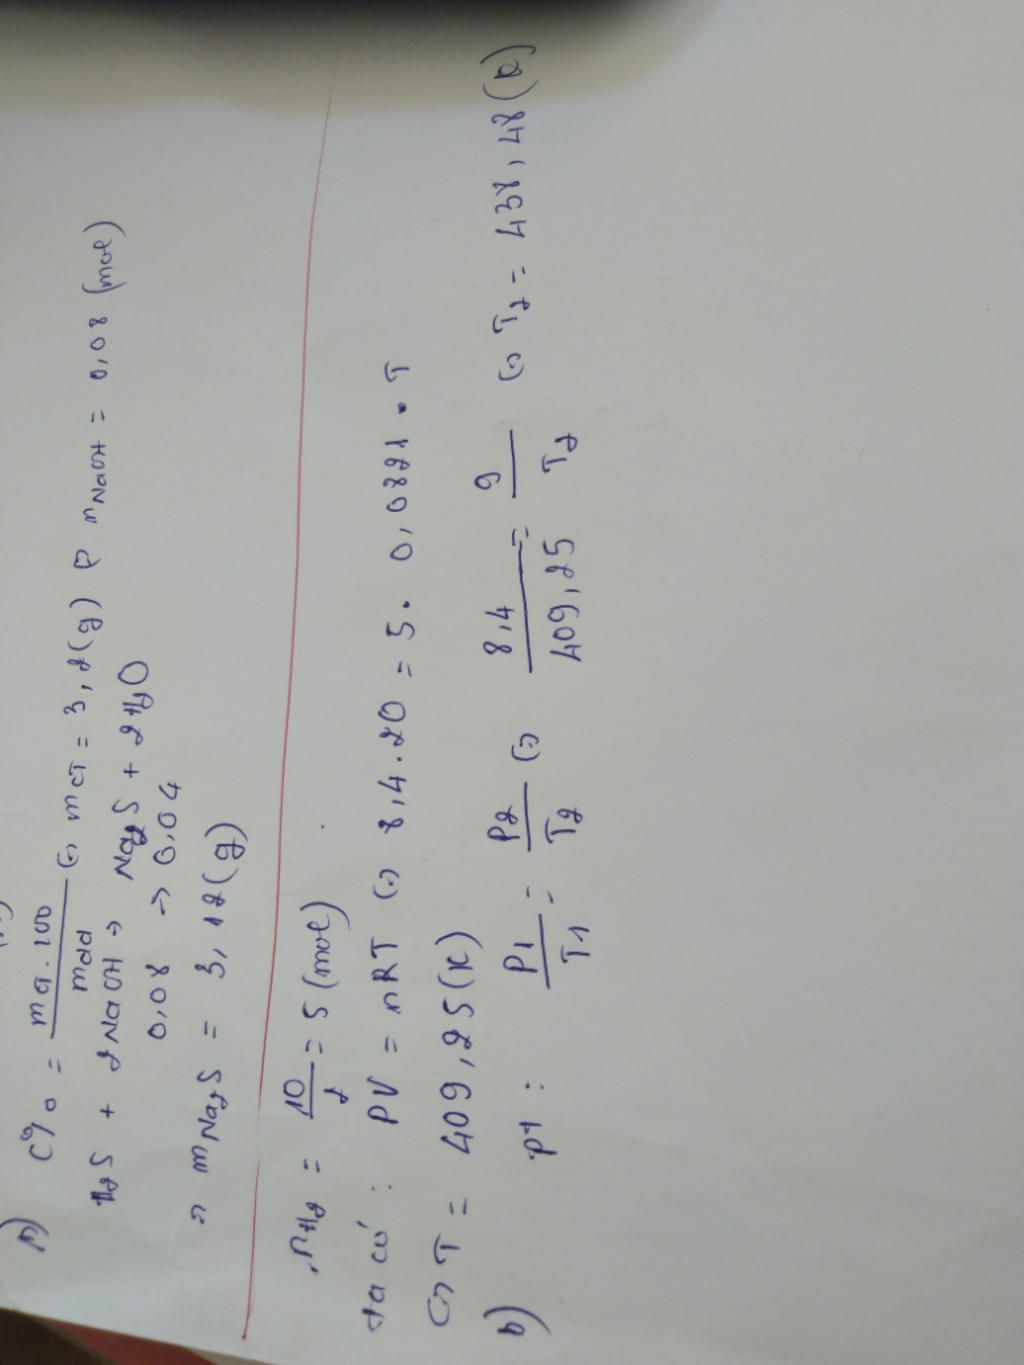 C% = mct.100 / mdd (=) mCT = 3,2(g) P nNaOH = 0,08 (mol)
H2S + 2NaOH → Na2S + 2H2O
0,08 → 0,04
=> mNa2S = 3,12(g)
nH2 = 10/2 = 5 (mol)
ta có: PV = nRT (=) 8,4.20 = 5. 0,0821.T
(=) T = 409,25(K)
b) pt: P1/T1 = P2/T2 (=) 8,4/409,25 = 9/T2 (=) T2 = 438,48(K)